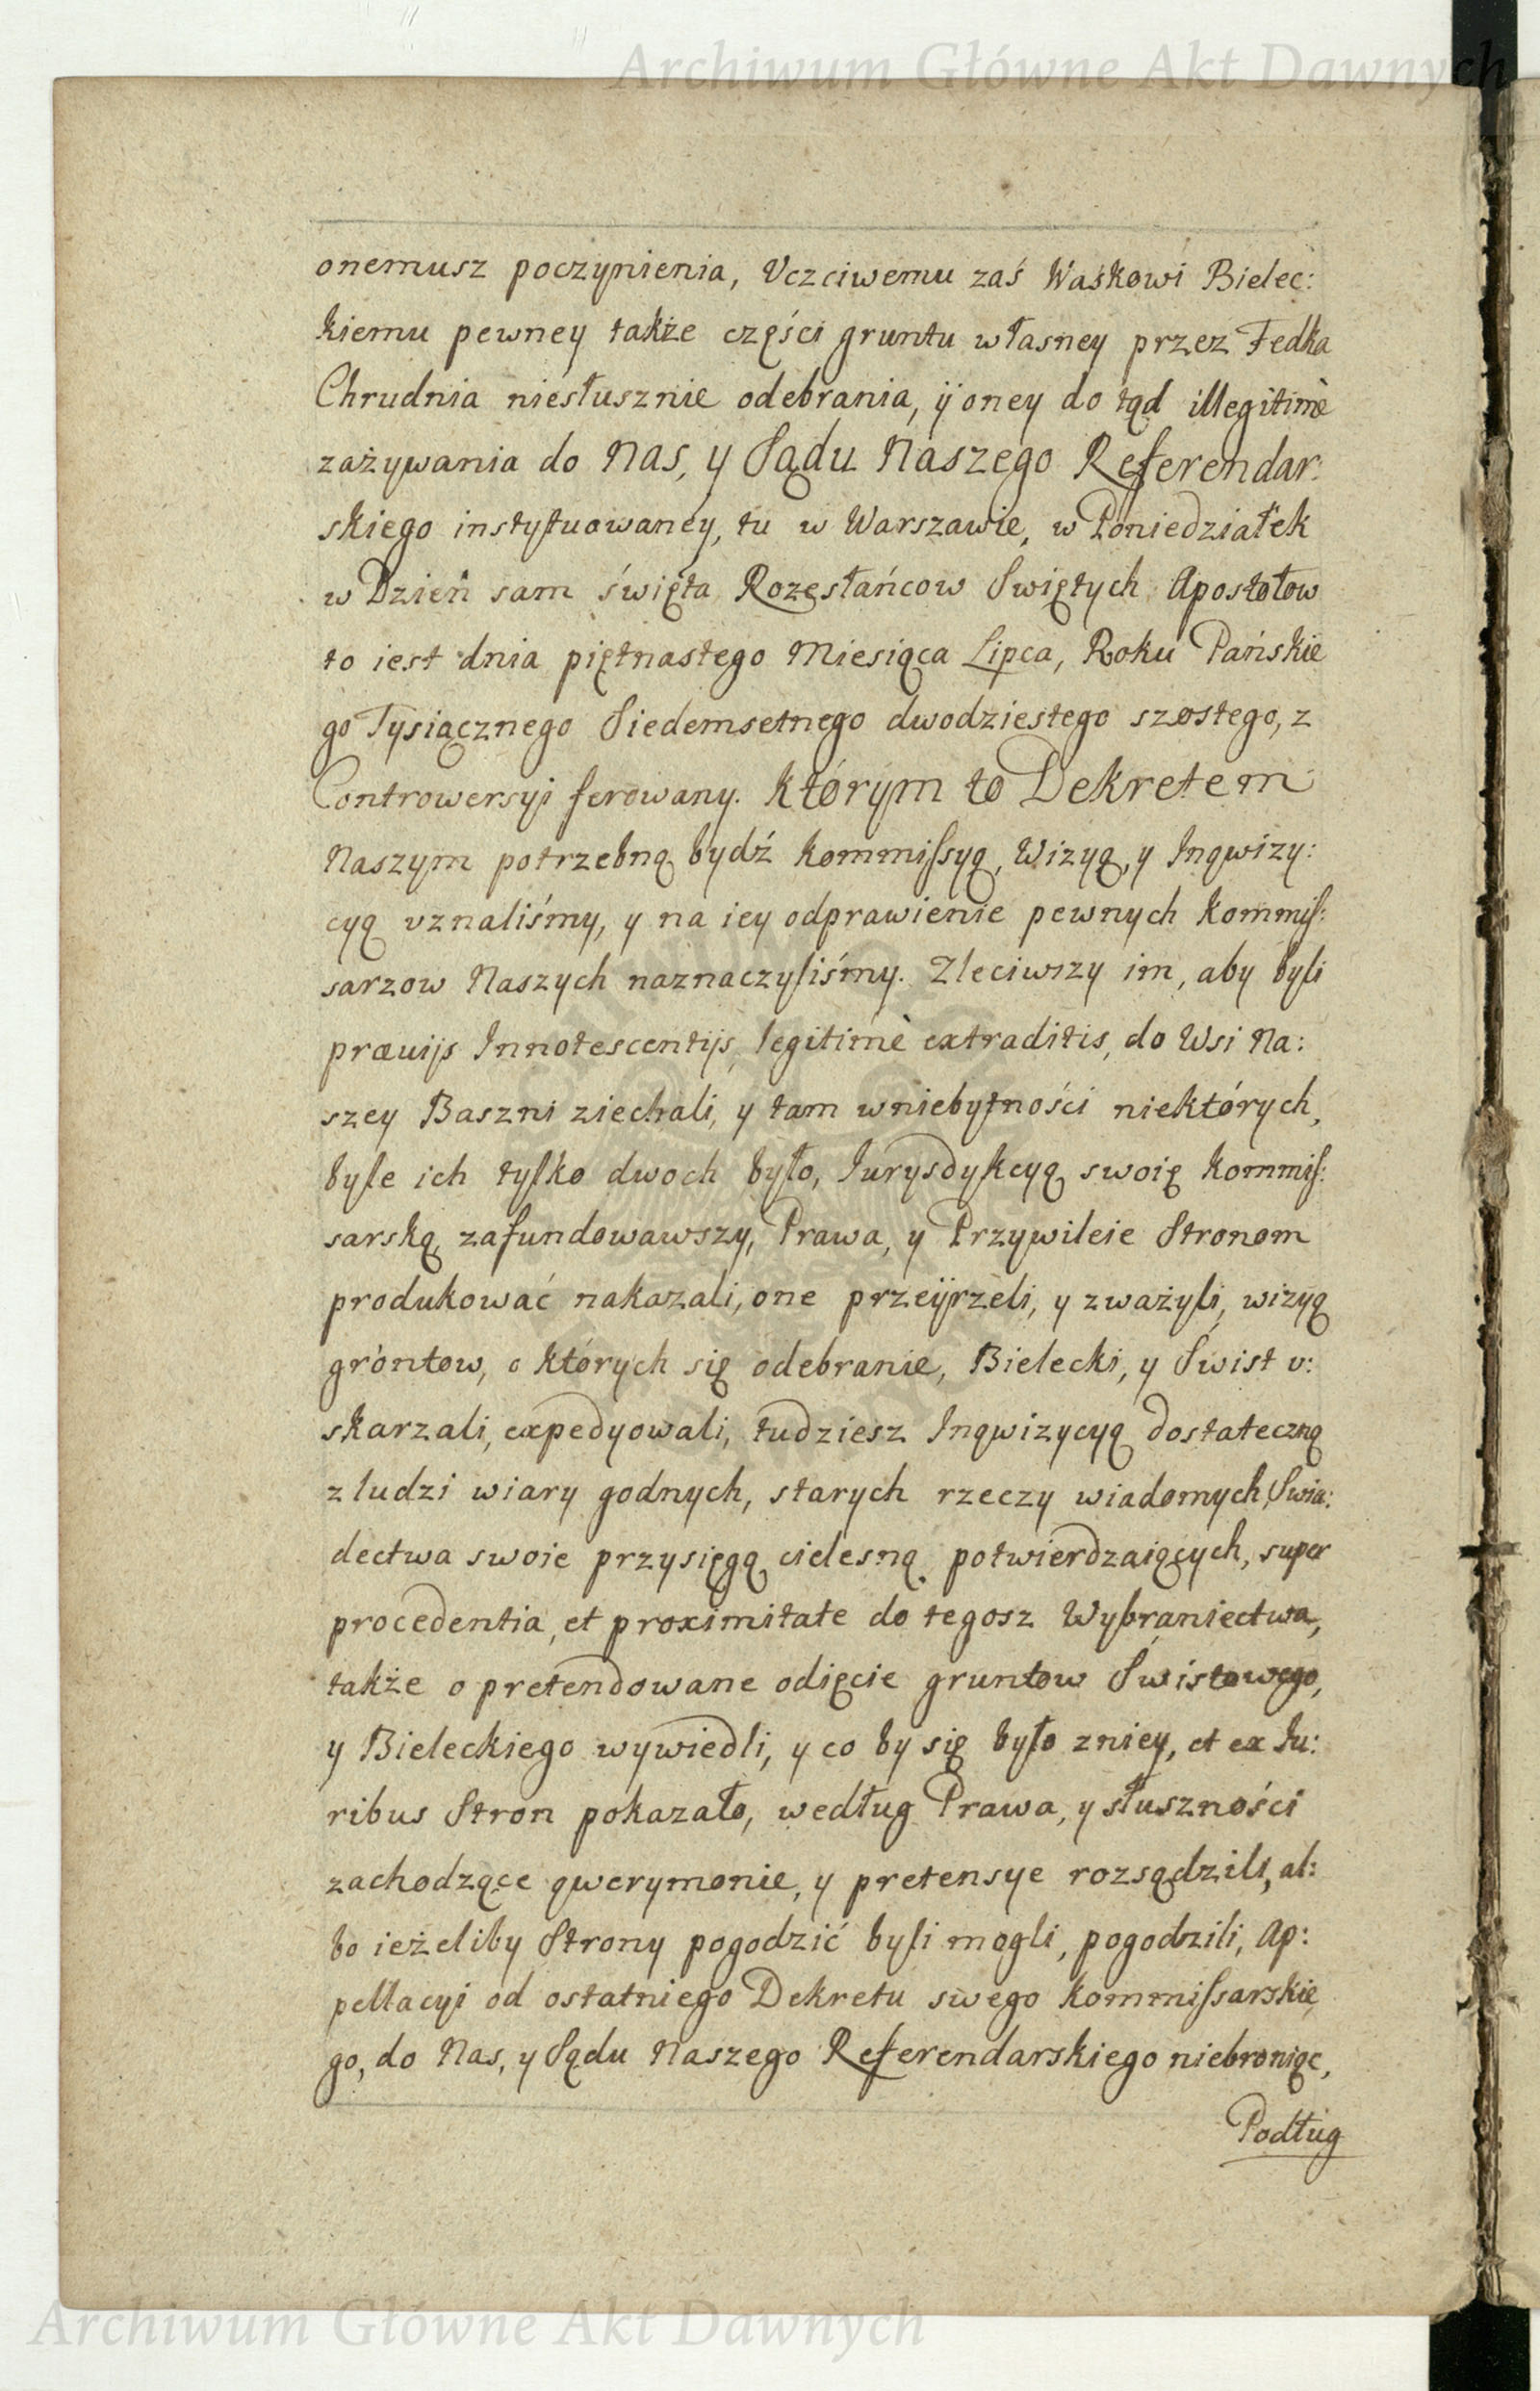 Archiwum Główne Akt Dawnych
onemusz poczynienia, Vczciwemu zaś Waśkowi Bielec:
kiemu pewney także części gruntu własney przez Fedka
Chrudnia niesłusznie odebrania, ÿ oney do tąd illegitimè
zażywania do Nas, y Sądu Naszego Referendar:
skiego instytuowaney, tu w Warszawie, w Poniedziałek
w Dzień sam święta Rozesłańcow Swiętych Apostołow
to iest dnia piętnastego Miesiąca Lipca, Roku Pańskie
go Tysiącznego Siedemsetnego dwodziestego szostego, z
Controwersyi ferowany. Którym to Dekretem
Naszym potrzebną bydź Kommissyą, Wizyą, y Inqwizy:
cyą vznaliśmy, y na iey odprawienie pewnych Kommis:
sarzow Naszych naznaczyliśmy. Zleciwszy im, aby byli
præuijs Innotescentijs, legitimè extraditis, do Wsi Na:
szey Baszni ziechali, y tam wniebytności niektórych,
byle ich tylko dwoch było, Iurysdykcyą swoię Kommis:
sarską zafundowawszy, Prawa, y Przywileie Stronom
produkować nakazali, one przeÿrzeli, y zważyli, wizyą
gróntow, o których się odebranie, Bielecki, y Świst v:
skarzali, expedyowali, tudziesz Inqwizycyą dostateczną
z ludzi wiary godnych, starych rzeczy wiadomych, Swia:
dectwa swoie przysięgą cielesną potwierdzaiących, super
procedentia, et proximitate do tegosz Wybraniectwa,
także o pretendowane odięcie gruntow Świstowego,
y Bieleckiego wywiedli, y co by się było zniey, et ex Iu:
ribus Stron pokazało, według Prawa, y słuszności
zachodzące qwerymonie, y pretensye rozsądzili, al:
bo ieżeliby Strony pogodzić byli mogli, pogodzili, Ap:
pellacyi od ostatniego Dekretu swego Kommissarskie
go, do Nas, y Sądu Naszego Referendarskiego niebroniąc,
Podług
Archiwum Główne Akt Dawnych